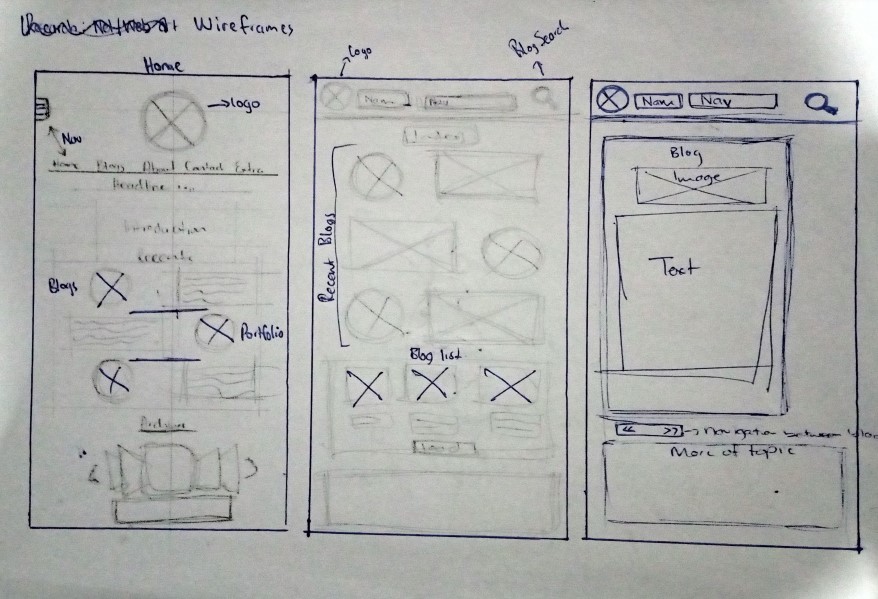 Wireframes
Home
logo
Nav
Home Blogs About Contact Extra
Headline ...
Introduction
Blogs
Portfolio
Logo
Blog Search
Name
Nav
Recent Blogs
Blog list
Nam Nav
Blog
Image
Text
<< >> → Navigation between
More of topic